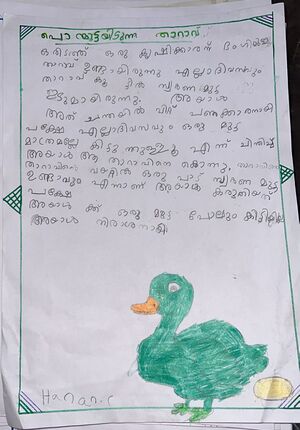 പൊന്മുട്ടയിടുന്ന താറാവ്
ഒരിടത്ത് ഒരു കൃഷിക്കാരന് ഭംഗിയുള്ള
താറാവ് ഉണ്ടായിരുന്നു എല്ലാദിവസവും
താറാവ് കൂട്ടിൽ സ്വർണ മുട്ട
ഇടുമായിരുന്നു. അയാൾ
അത് ചന്തയിൽ വിറ്റ് പണക്കാരനായി
പക്ഷേ എല്ലാദിവസവും ഒരു മുട്ട
മാത്രമല്ലെ കിട്ടുന്നുള്ളൂ എന്ന് ചിന്തിച്ച്
അയാൾ ആ താറാവിനെ കൊന്നു.
താറാവിന്റെ വയറ്റിൽ ഒരു പാട് സ്വർണ മുട്ട
ഉണ്ടാവും എന്നാണ് അയാൾ കരുതിയത്
പക്ഷേ
അയാൾ ക്ക് ഒരു മുട്ട പോലും കിട്ടിയില്ല
അയാൾ നിരാശനായി.
Hanan.C